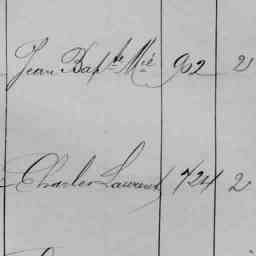 Jean Bapte Mie 902 2
Charles Laurent 724 2